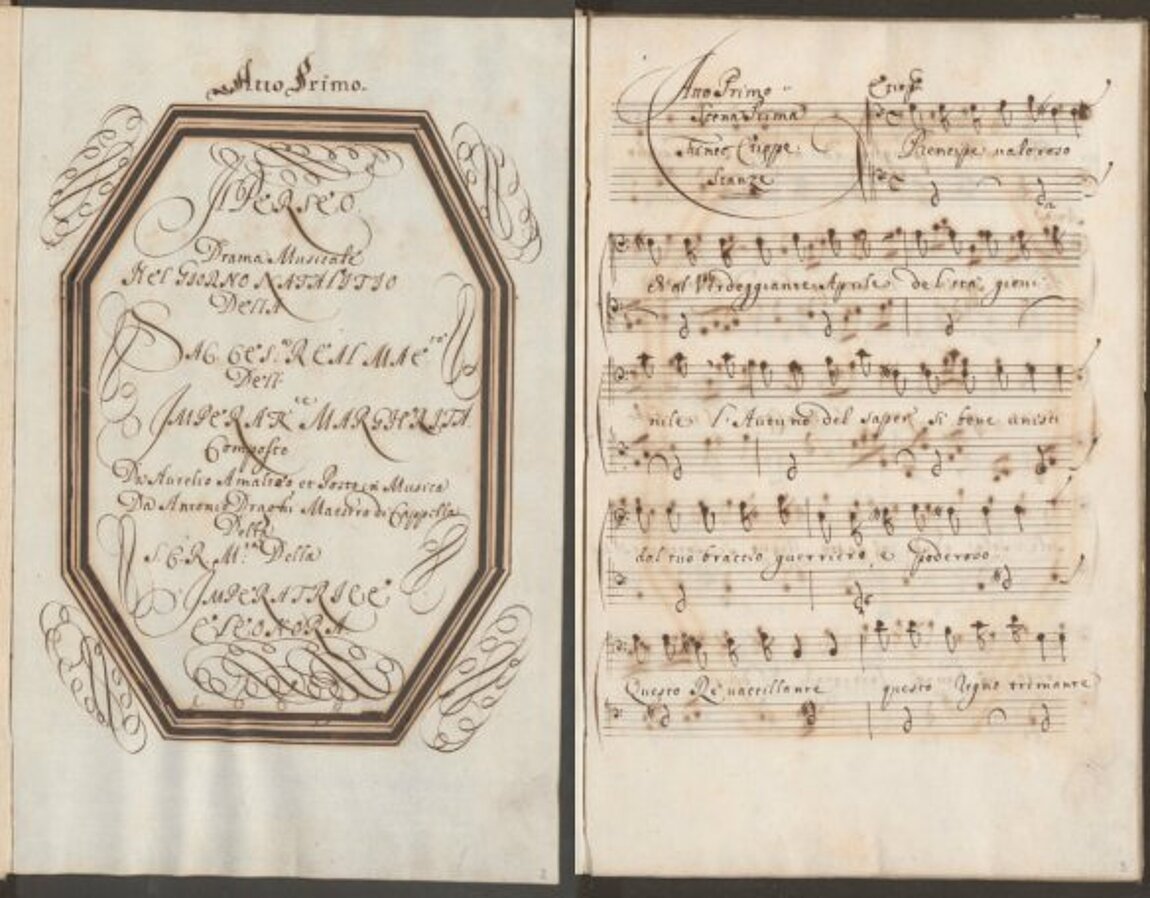 Atto Primo.
Il PERSEO
Drama Musicale
Nel GIORNO NATALITIO
Della
SAC. CES.ª REAL MAE.tà
Dell'
IMPERAT.ce MARGHERITA
Composto
Da Aurelio Amalteo et Posto in Musica
Da Antonio Draghi Maestro di Cappella
Della
S. C. R. M.tà Della
IMPERATRICE
ELEONORA
2
Atto Primo
Scena Prima
Fineo, Crippe.
Stanze
Prencipe valoroso
da
ch'al Verdeggiante Aprile de l'età gioui
nile l'Autuno del saper si bene unisti
dal tuo braccio guerriero, e poderoso
Questo Rè vaccillante questo Regno tremante
3